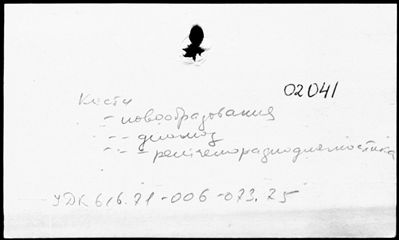 02041
Кости
- новообразования
- - диагноз
- - - рентгенорадиодиагностика
УДК 616.71-006-073.75